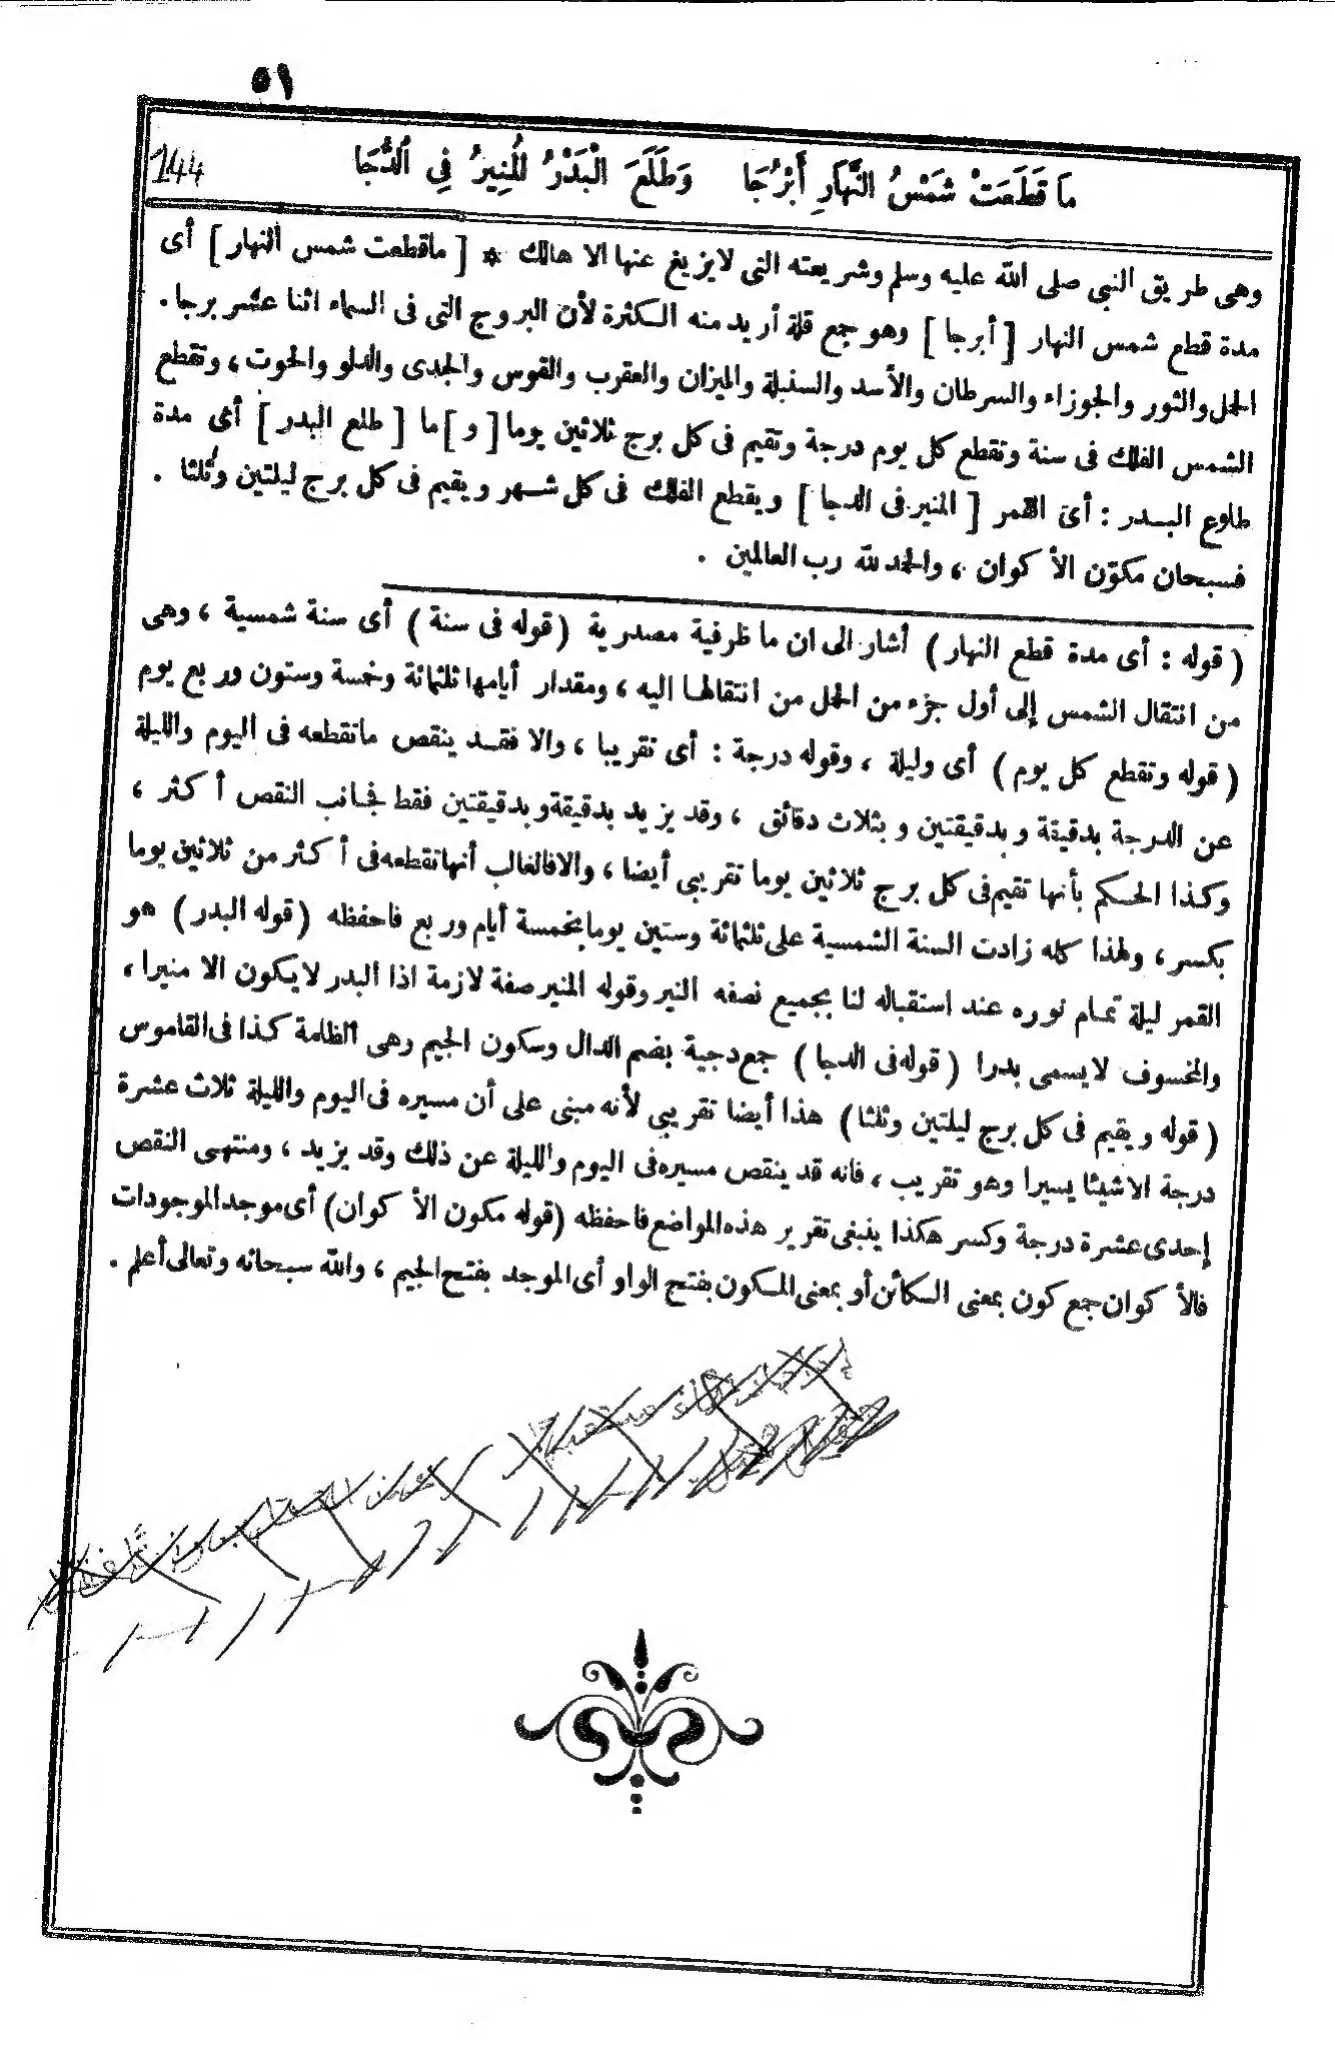 ٥١
144
مَا قَطَعَتْ شَمْسُ النَّهَارِ أَبْرُجَا وَطَلَعَ الْبَدْرُ الْمُنِيرُ فِي الدُّجَا
وهى طريق النبي صلى الله عليه وسلم وشريعته التى لايزيغ عنها الا هالك * [ ماقطعت شمس النهار ] أى
مدة قطع شمس النهار [ أبرجا ] وهو جمع قلة أريد منه الكثرة لأن البروج التى فى السماء اثنا عشر برجا .
الحمل والثور والجوزاء والسرطان والأسد والسنبلة والميزان والعقرب والقوس والجدى والدلو والحوت ، وتقطع
الشمس الفلك فى سنة وتقطع كل يوم درجة وتقيم فى كل برج ثلاثين يوما [ و ] ما [ طلع البدر ] أى مدة
طلوع البدر : أى القمر [ المنير فى الدجا ] ويقطع الفلك فى كل شهر ويقيم فى كل برج ليلتين وثلثا .
فسبحان مكوّن الأكوان ، والحمد لله رب العالمين .
( قوله : أى مدة قطع النهار ) أشار الى ان ما ظرفية مصدرية ( قوله فى سنة ) أى سنة شمسية ، وهى
من انتقال الشمس إلى أول جزء من الحمل من انتقالها اليه ، ومقدار أيامها ثلثمائة وخمسة وستون وربع يوم
( قوله وتقطع كل يوم ) أى وليلة ، وقوله درجة : أى تقريبا ، والا فقد ينقص ماتقطعه فى اليوم والليلة
عن الدرجة بدقيقة وبدقيقتين وبثلاث دقائق ، وقد يزيد بدقيقة وبدقيقتين فقط فجانب النقص أكثر ،
وكذا الحكم بأنها تقيم فى كل برج ثلاثين يوما تقريبي أيضا ، والا فالغالب أنها تقطعه فى أكثر من ثلاثين يوما
بكسر ، ولهذا كله زادت السنة الشمسية على ثلثمائة وستين يوما بخمسة أيام وربع فاحفظه ( قوله البدر ) هو
القمر ليلة تمام نوره عند استقباله لنا بجميع نصفه النير وقوله المنير صفة لازمة اذا البدر لايكون الا منيرا ،
والمخسوف لايسمى بدرا ( قوله فى الدجا ) جمع دجية بضم الدال وسكون الجيم وهى الظلمة كذا فى القاموس
( قوله ويقيم فى كل برج ليلتين وثلثا ) هذا أيضا تقريبي لأنه مبنى على أن مسيره فى اليوم والليلة ثلاث عشرة
درجة الا شيئا يسيرا وهو تقريب ، فانه قد ينقص مسيره فى اليوم والليلة عن ذلك وقد يزيد ، ومنتهى النقص
إحدى عشرة درجة وكسر هكذا ينبغى تقرير هذه المواضع فاحفظه ( قوله مكون الأكوان ) أى موجد الموجودات
فالأكوان جمع كون بمعنى الكائن أو بمعنى المكون بفتح الواو أى الموجد بفتح الجيم ، والله سبحانه وتعالى أعلم .